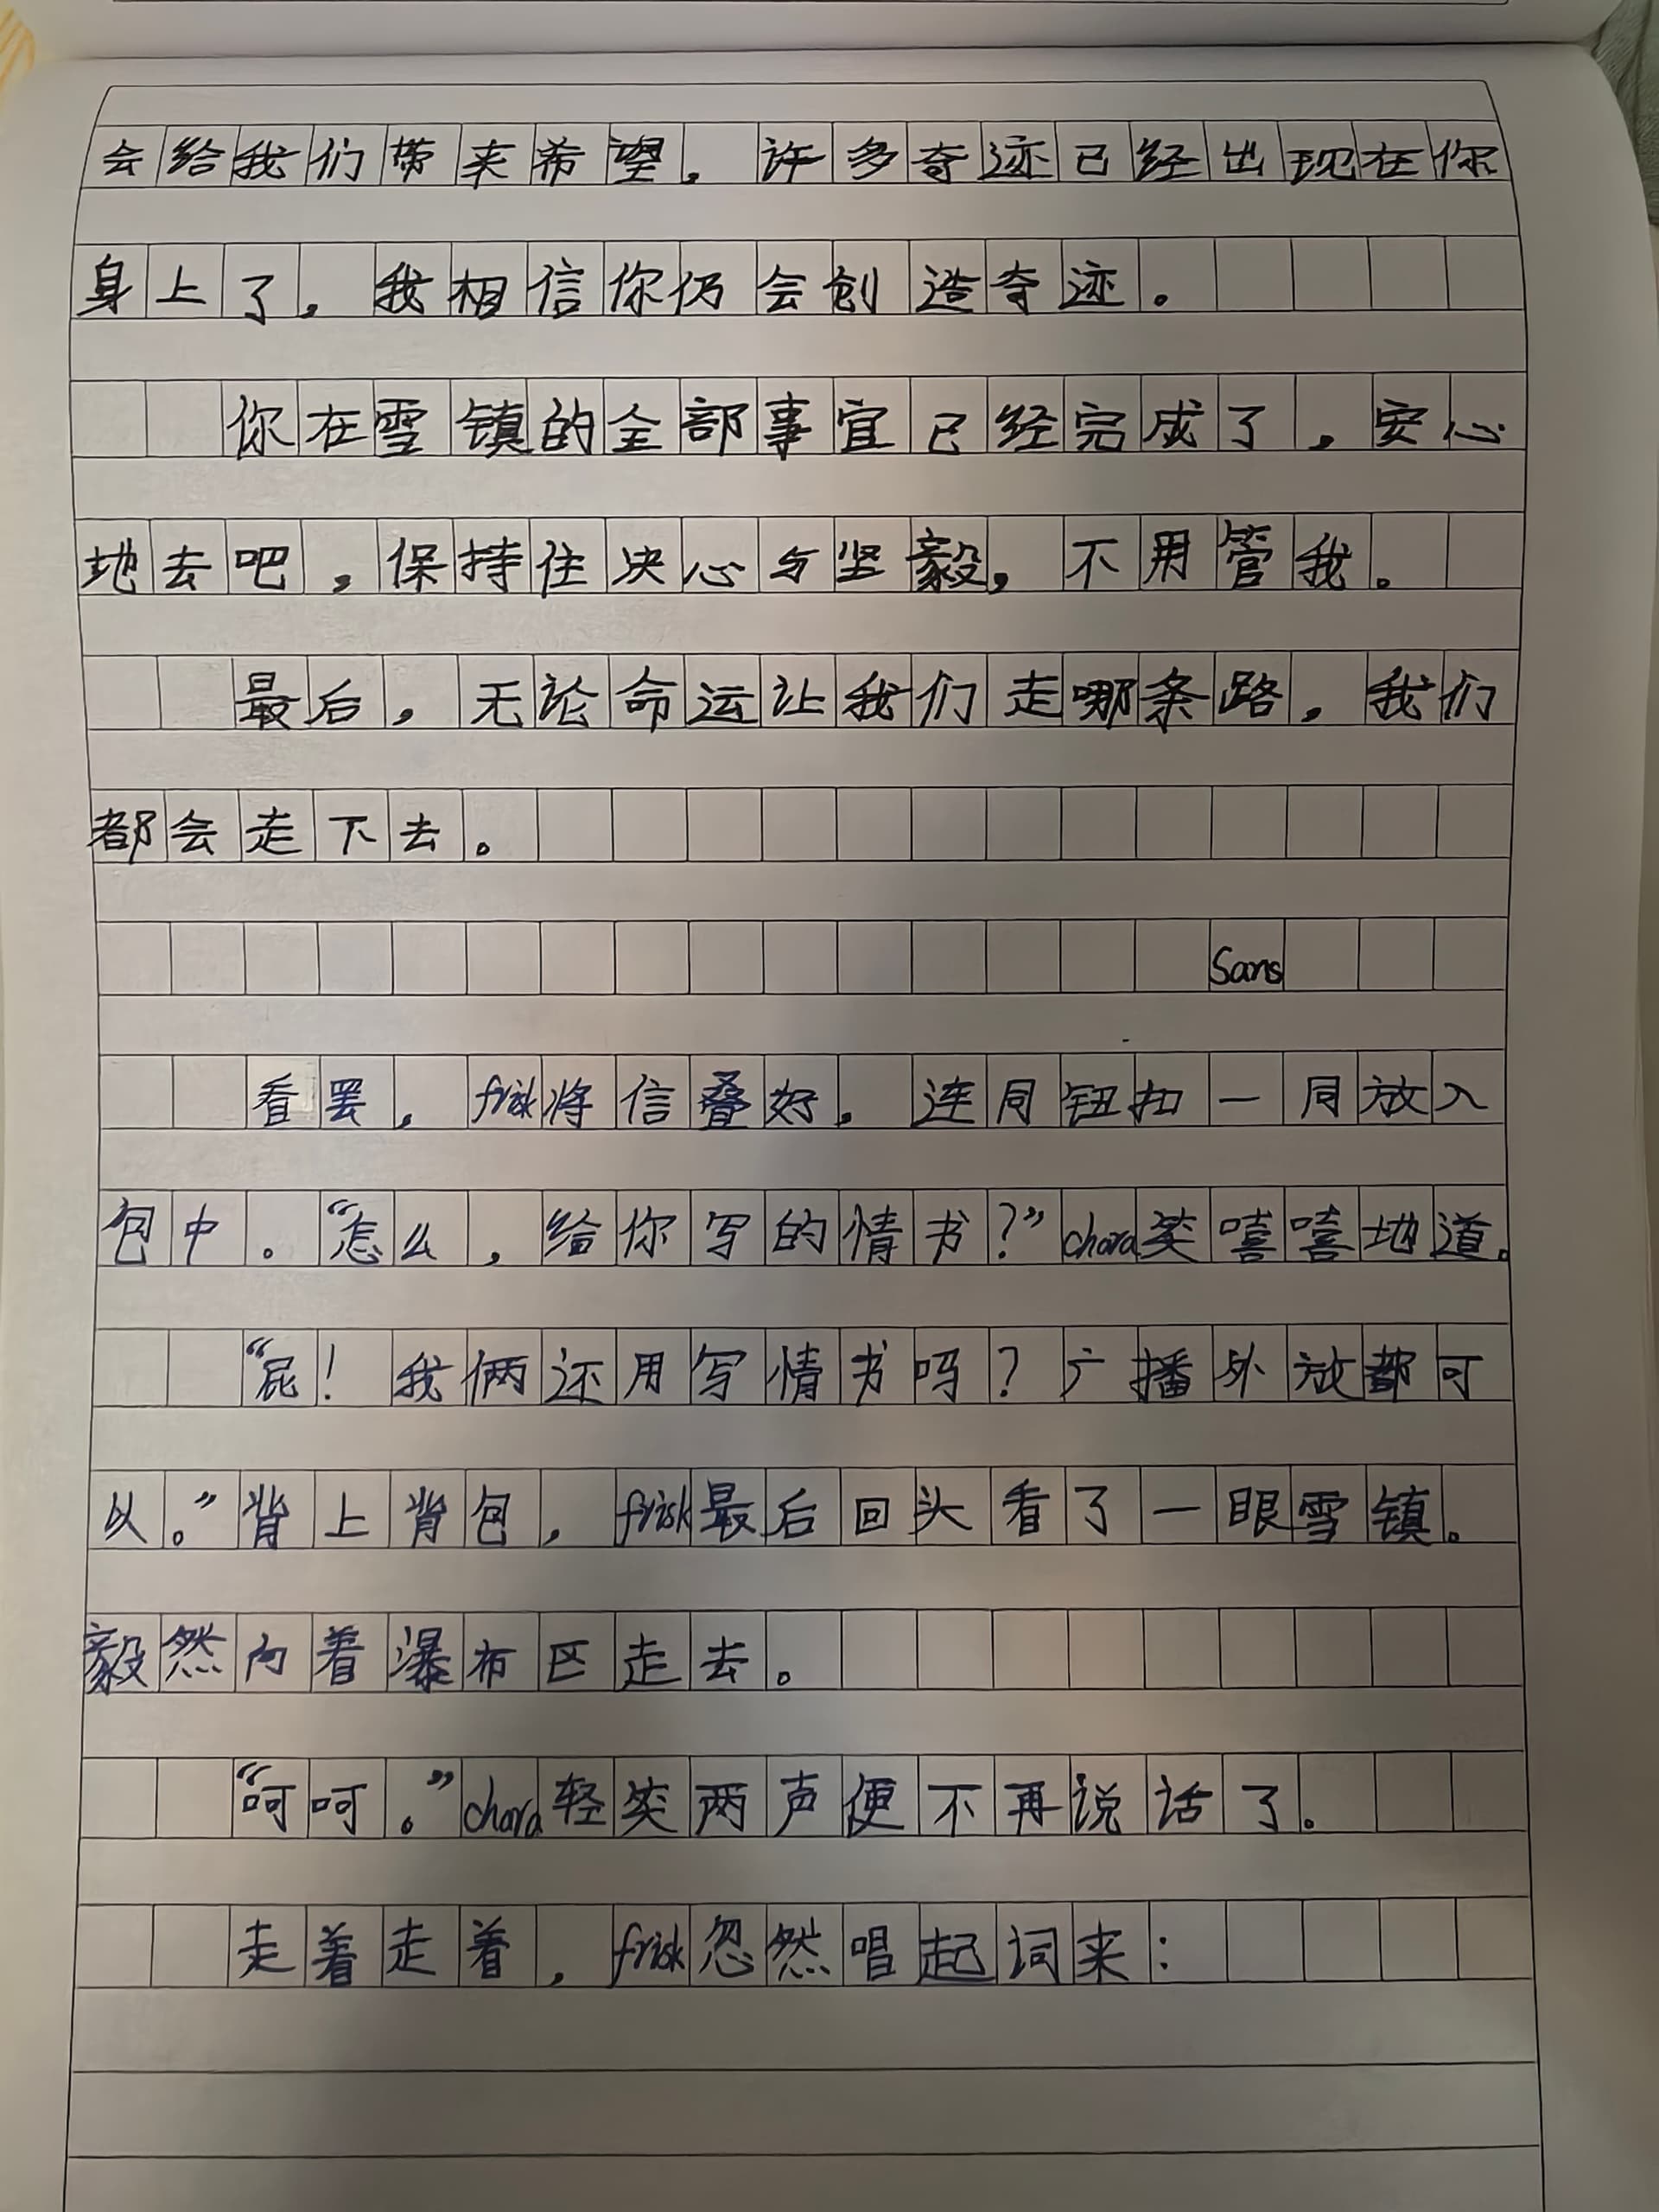 会给我们带来希望，许多奇迹已经出现在你
身上了，我相信你仍会创造奇迹。
你在雪镇的全部事宜已经完成了，安心
地去吧，保持住决心与坚毅，不用管我。
最后，无论命运让我们走哪条路，我们
都会走下去。
Sans
看罢，frisk将信叠好，连同钮扣一同放入
包中。“怎么，给你写的情书？”chara笑嘻嘻地道。
“屁！我俩还用写情书吗？广播外放都可
以。”背上背包，frisk最后回头看了一眼雪镇。
毅然向着瀑布区走去。
“呵呵。”chara轻笑两声便不再说话了。
走着走着，frisk忽然唱起词来：